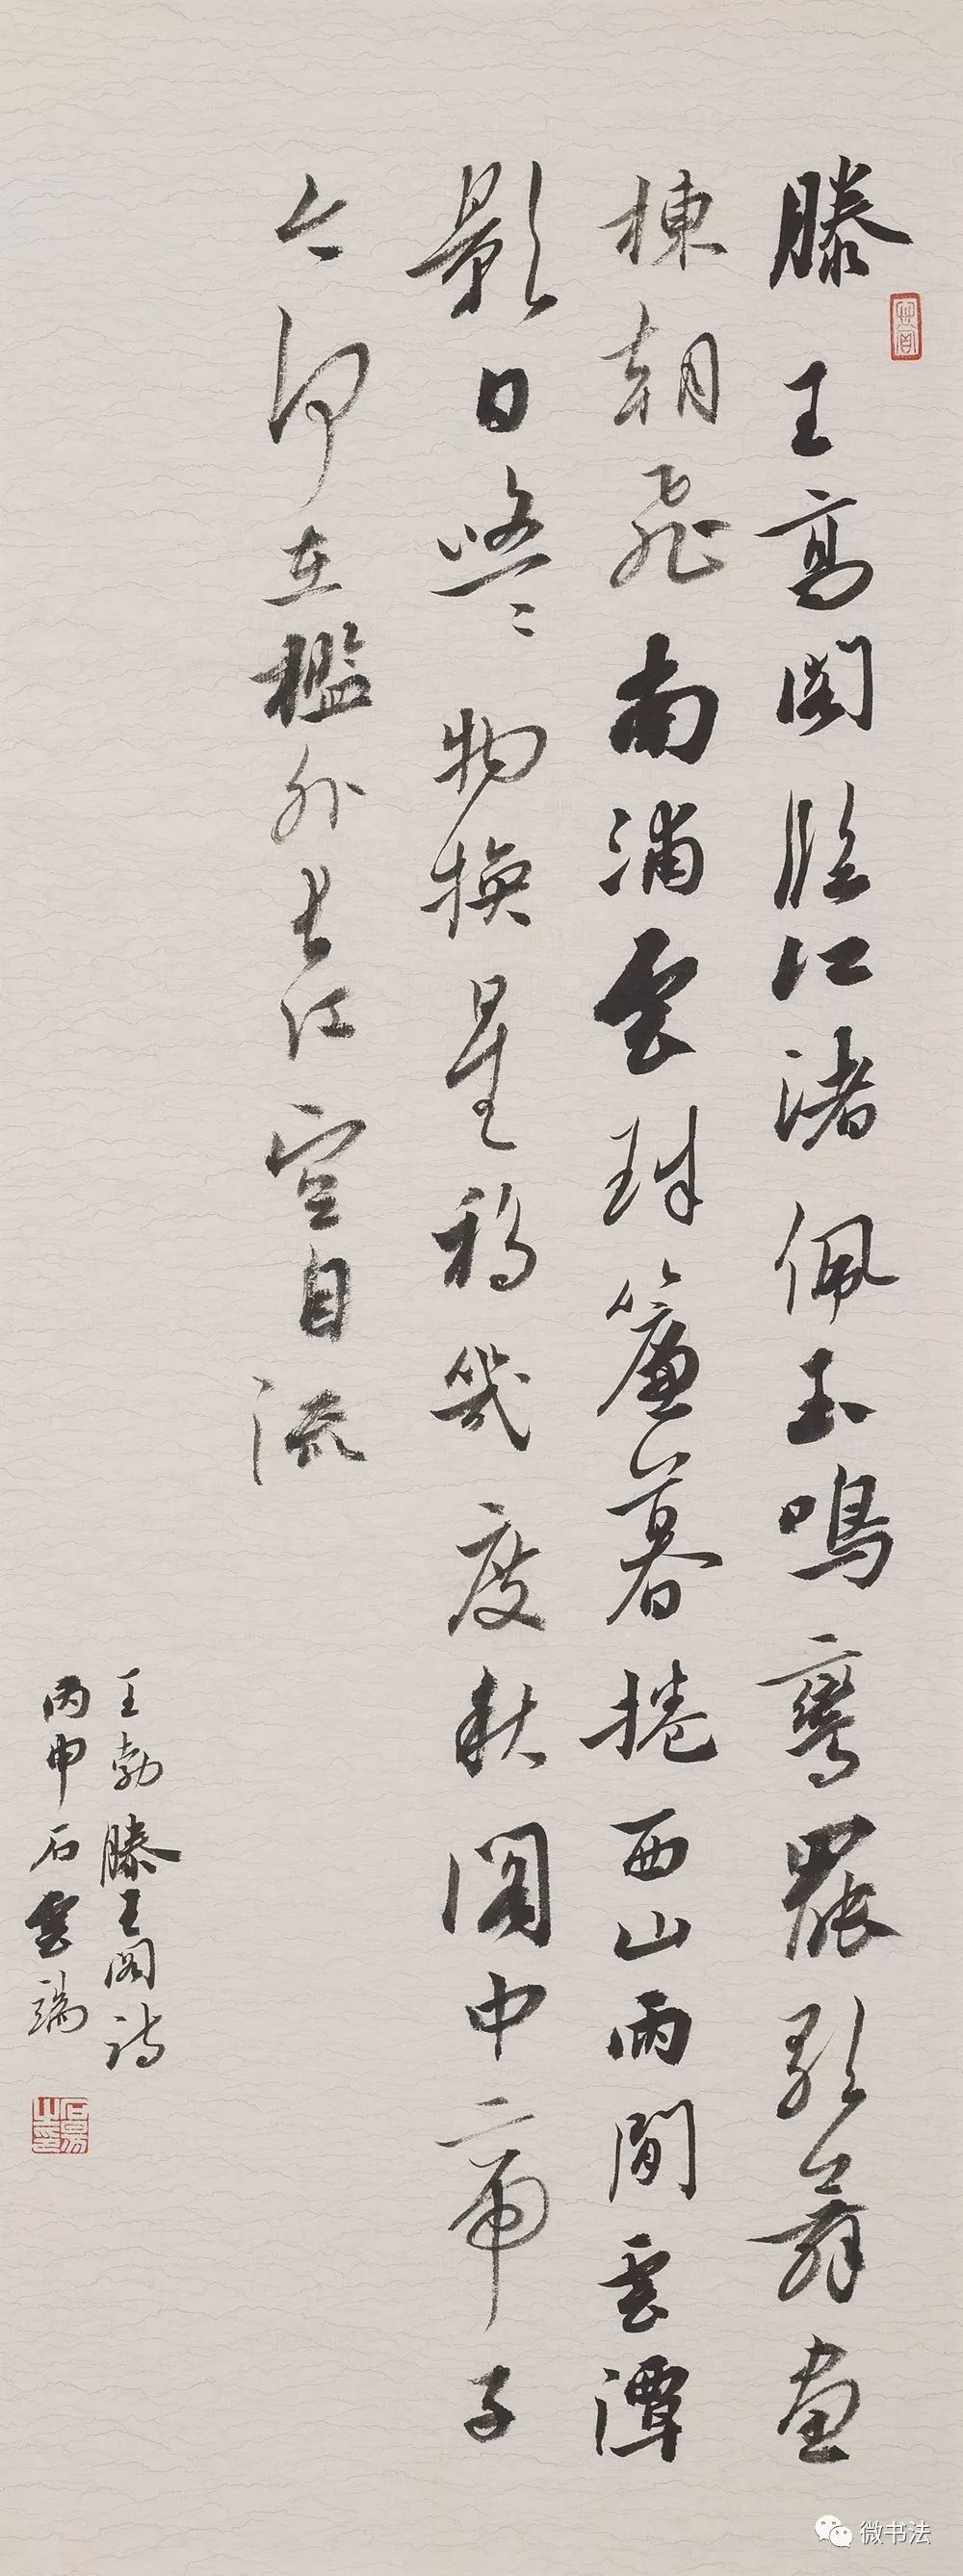 滕王高閣臨江渚佩玉鳴鸞罷歌舞畫
棟朝飛南浦雲珠簾暮捲西山雨閒雲潭
影日悠〻物換星移幾度秋閣中帝子
今何在檻外長江空自流
王勃滕王閣詩
丙申石雲端
微书法